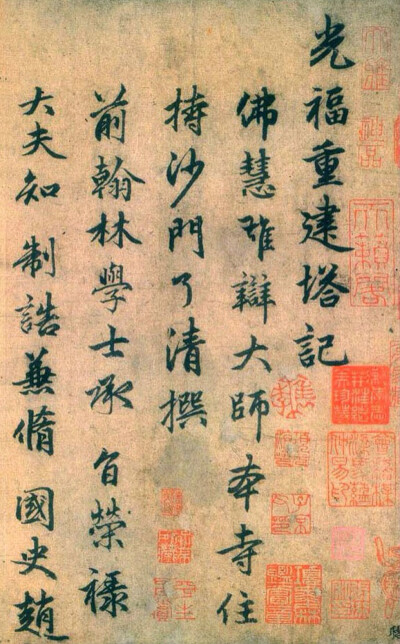 光福重建塔記
佛慧雄辯大師本寺住
持沙門了清撰
前翰林學士承旨榮祿
大夫知制誥兼脩國史趙